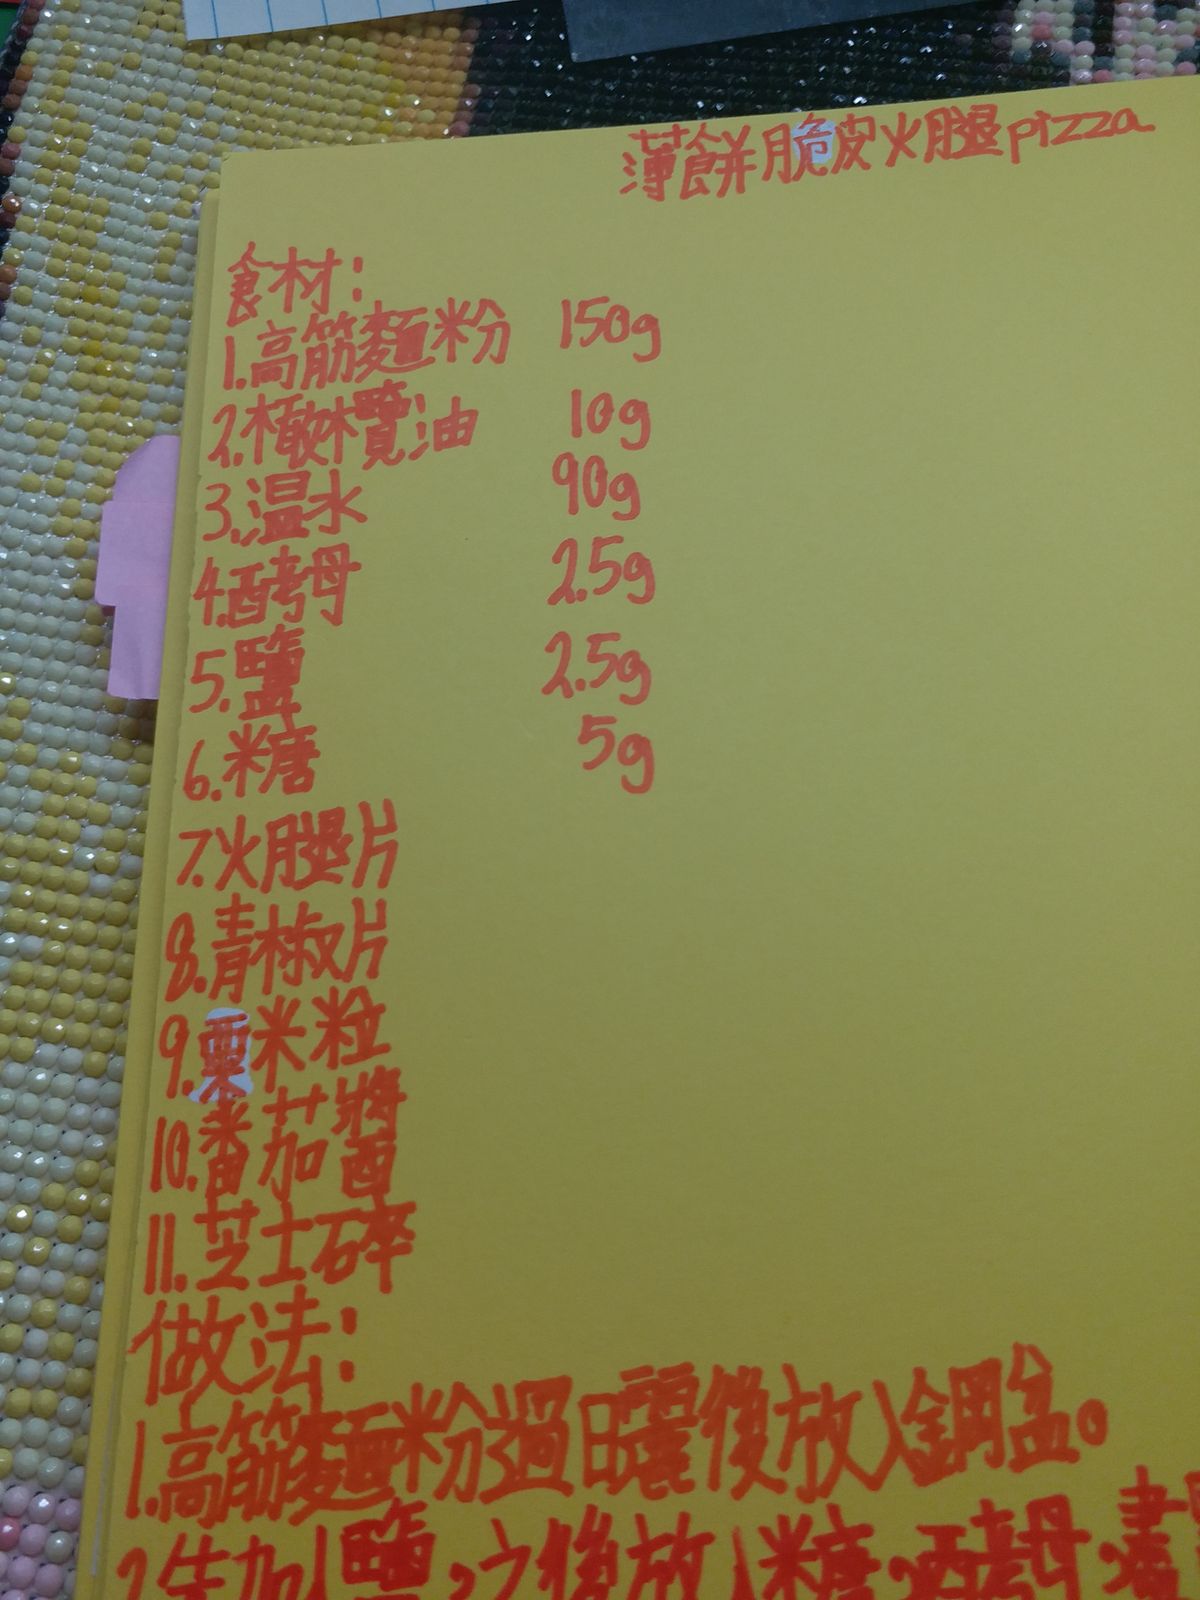 薄餅脆皮火腿pizza
食材：
1.高筋麵粉 150g
2.橄欖油 10g
3.温水 90g
4.酵母 2.5g
5.鹽 2.5g
6.糖 5g
7.火腿片
8.青椒片
9.粟米粒
10.番茄醬
11.芝士碎
做法：
1.高筋麵粉過曬後放入鋼盆。
2.先加入鹽，之後放入糖，酵母，盡